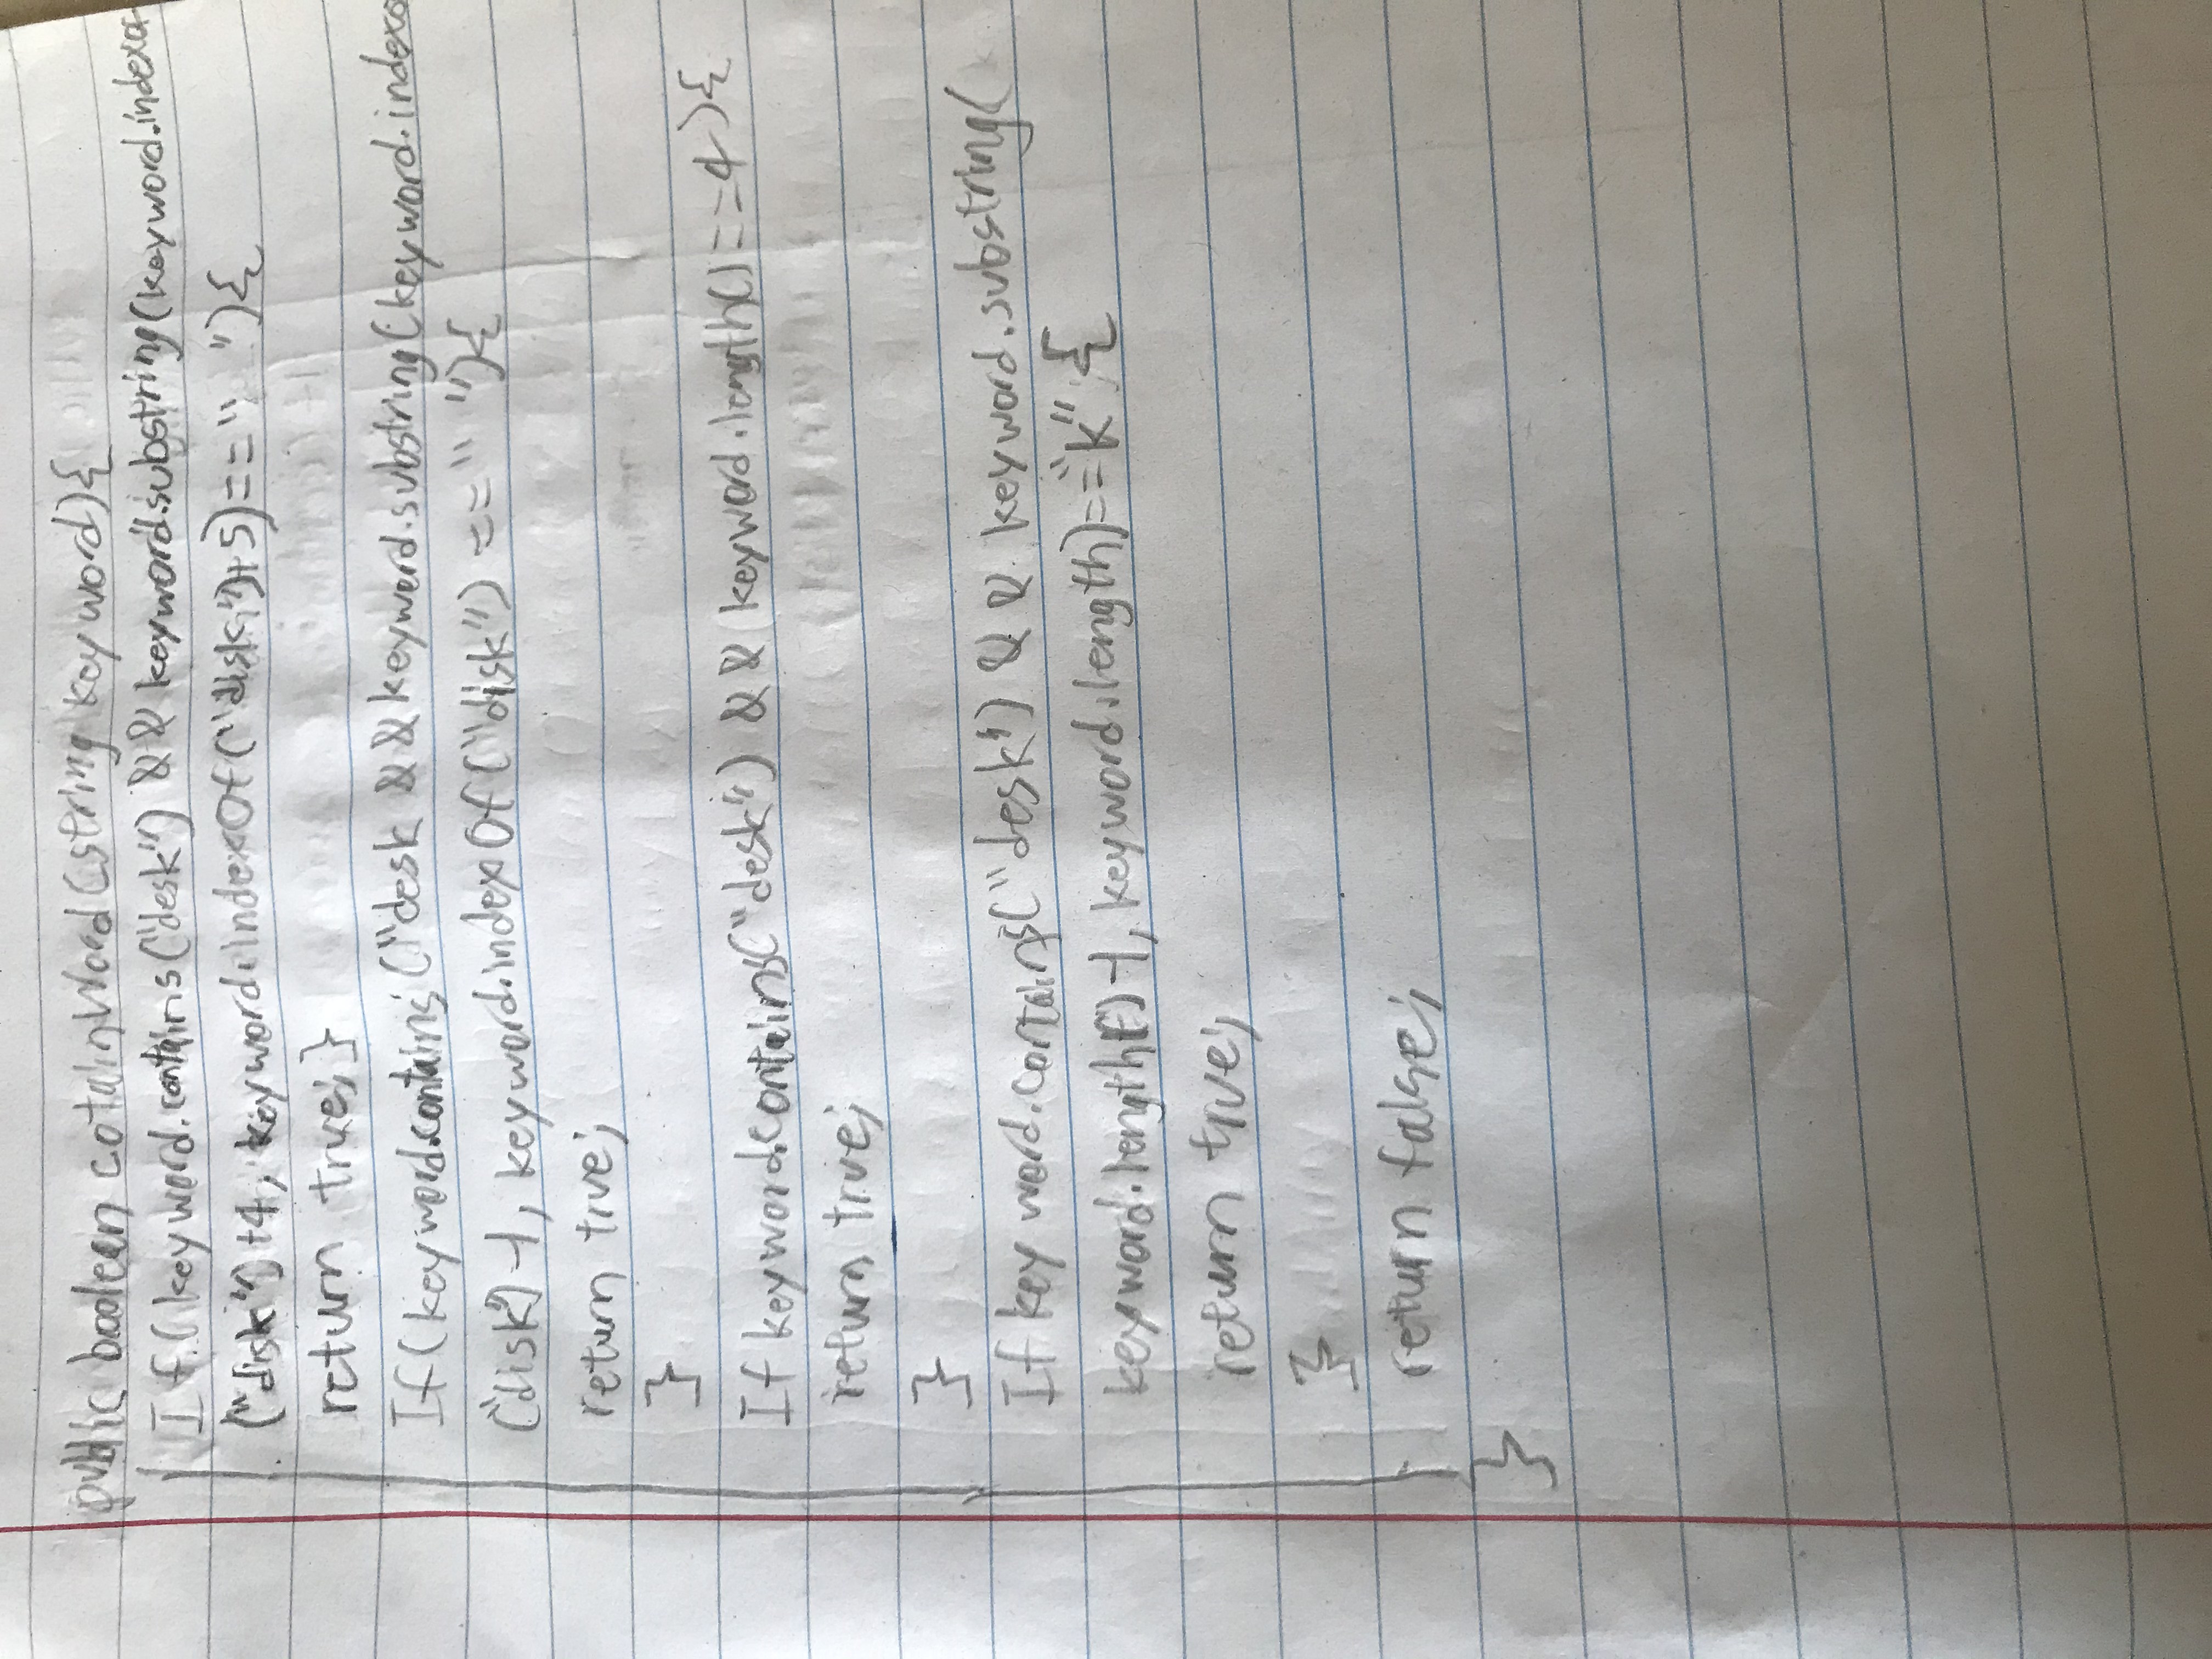 public boolean cotainWord(string keyword){
If(keyword.contains("desk") && keyword.substring(keyword.indexof
("disk")+4, keyword.indexOf("disk")+5)==" "){
return true;}
If(keyword.contains("desk && keyword.substring(keyword.indexo
("disk")-1, keyword.indexOf("disk") ==" "){
return true;
}
If keyword.contains("desk") && keyword.length()==4){
return true;
}
If key word.contains("desk") && keyword.substring(
keyword.length()-1, keyword.length)=="k" {
return true;
}
return false;
}